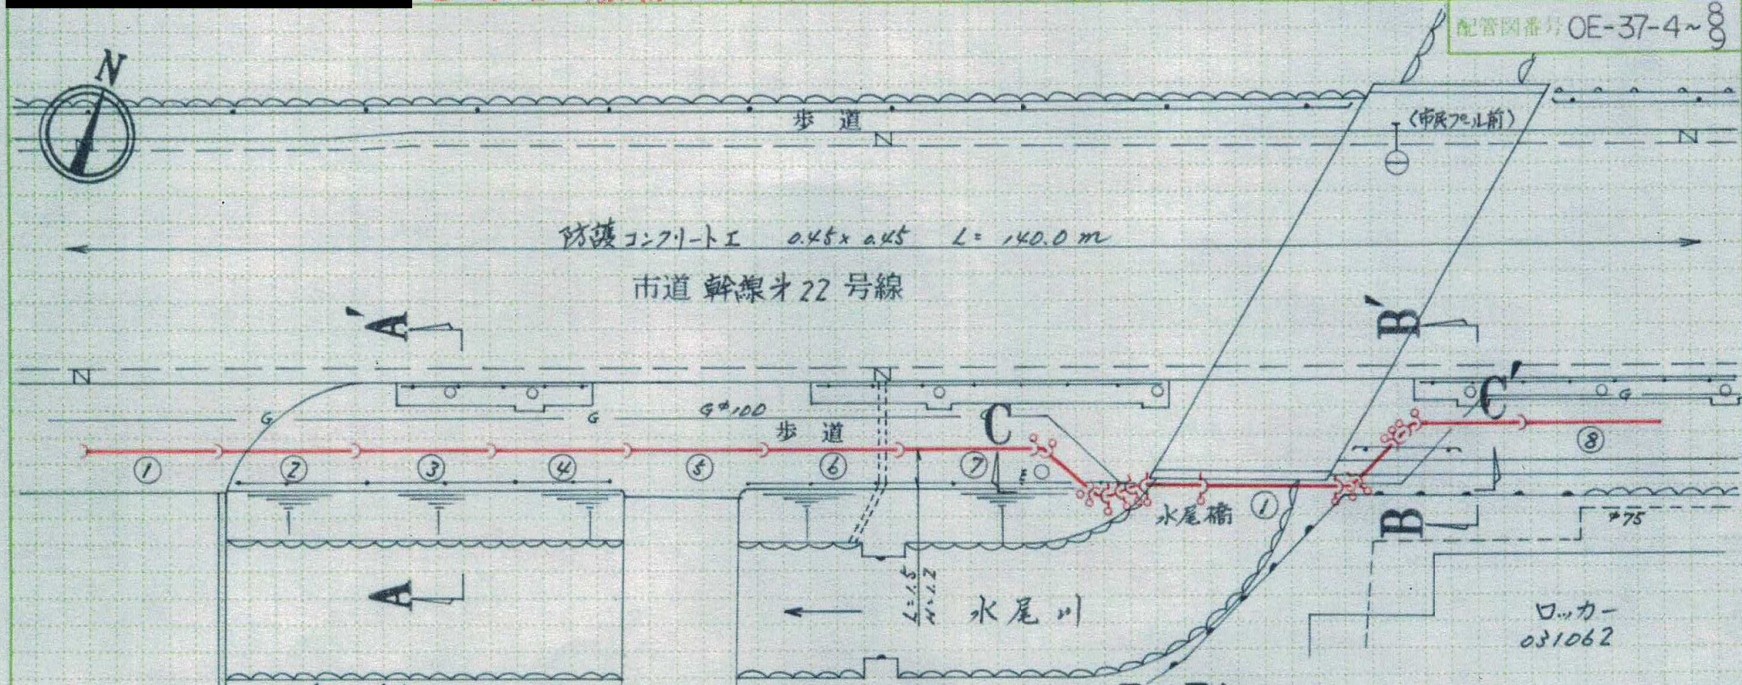 配管図番号 OE-37-4~8
9
N
歩道
N
N
(市民プール前)
防護コンクリート工 0.45×0.45 L=140.0m
市道 幹線才22号線
A'
B'
N
N
C'
G
G
Gφ100
G
C
歩道
① ② ③ ④ ⑤ ⑥ ⑦
⑧
E
水尾橋
①
B
φ75
A
L=1.5
H=1.2
水尾川
ロッカー
031062